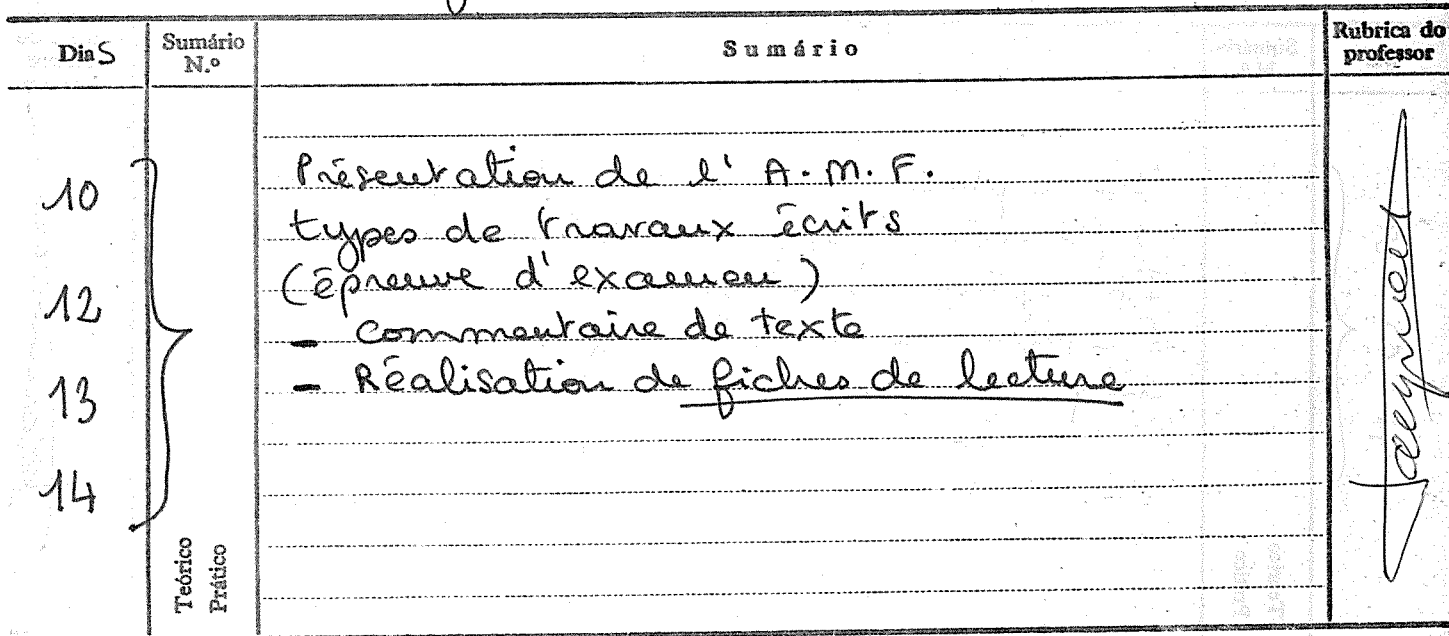 Dias
Sumário
N.º
Sumário
Rubrica do
professor
10
12
13
14
Présentation de l'A.M.F.
types de travaux écrits
(épreuve d'examen)
- commentaire de texte
- Réalisation de fiches de lecture
Teórico
Prático